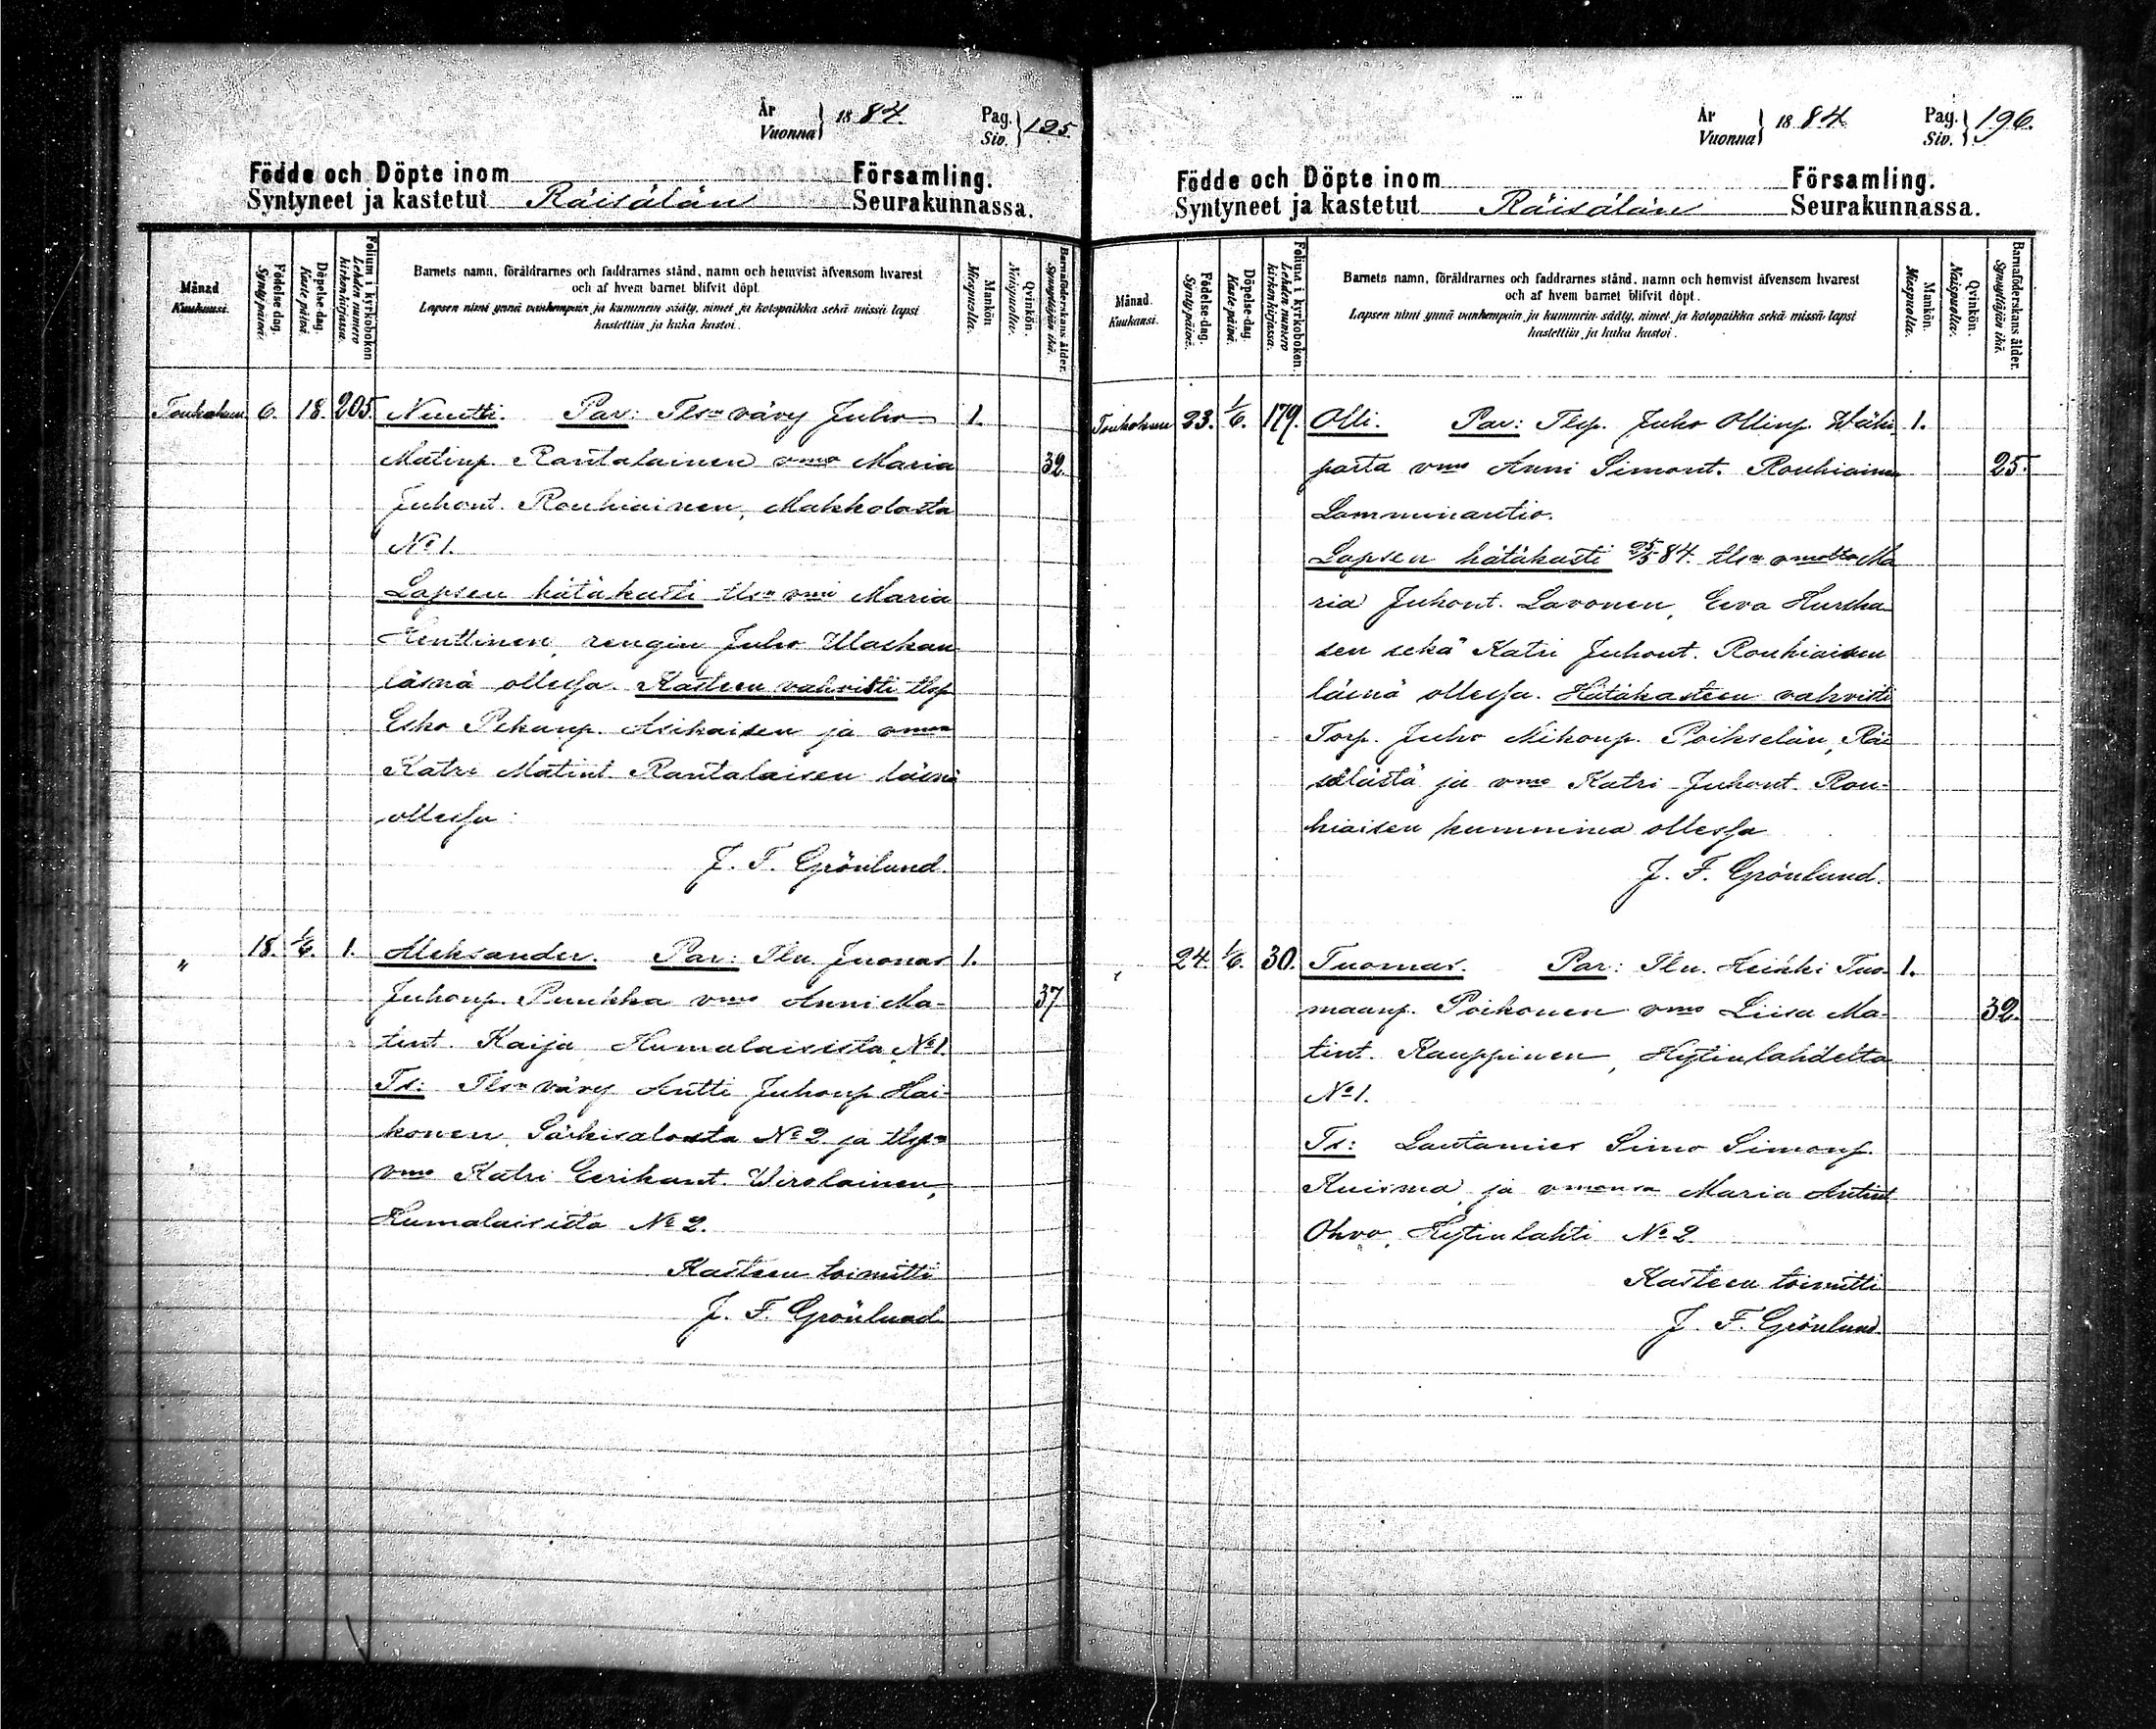 År
Vuonna } 1884.
Pag.
Siv. } 195.
Födde och Döpte inom Församling.
Syntyneet ja kastetut Räisälän Seurakunnassa.
Månad
Kuukausi.
Födelse dag.
Syntypäivä.
Döpelse-dag.
Kastepäivä.
Folium i kyrkobokon
Lehden numero
kirkonkirjassa.
Barnets namn, föräldrarnes och faddrarnes stånd, namn och hemvist äfvensom hvarest
och af hvem barnet blifvit döpt.
Lapsen nimi ynnä vanhempain ja kummein sääty, nimet ja kotopaikka sekä missä lapsi
kastettiin ja kuka kastoi.
Mankön
Miespuolia.
Qvinkön.
Naispuolia.
Barnaföderskans ålder.
Synnyttäjän ikä.
Toukokuu 6. 18. 205. Nuutti. Par: Tlsn vävy Juho 1.
Matinp. Rantalainen vmo Maria 32.
Juhont. Rouhiainen, Makkolasta
No 1.
Lapsen hätäkasti tlsn vmi Maria
Henttinen, rengin Juho Ulaskan
läsnä ollessa. Kasteen vahvisti tlsp
Esko Pekanp. Asikaisen ja vmon
Katri Matint. Rantalaisen läsnä
ollessa.
J. F. Grönlund.
" 18. 1/6. 1. Aleksander. Par: Tln. Juonas 1.
Juhonp. Puukka vmo Anni Ma- 37
tint. Kaija Humalaisista, No 1.
Ts: Tlsn vävy Antti Juhonp Hai-
konen, Särkisalosta No 2 ja tlsp
vmo Katri Eerikant. Wirolainen,
Humalaisista No 2.
Kasteen toimitti
J. F. Grönlund
År
Vuonna } 1884.
Pag.
Siv. } 196.
Födde och Döpte inom Församling.
Syntyneet ja kastetut Räisälän Seurakunnassa.
Månad.
Kuukausi.
Födelse-dag.
Syntypäivä.
Döpelse-dag.
Kastepäivä.
Folium i kyrkobokon.
Lehden numero
kirkonkirjassa.
Barnets namn, föräldrarnes och faddrarnes stånd, namn och hemvist äfvensom hvarest
och af hvem barnet blifvit döpt.
Lapsen nimi ynnä vanhempain ja kummein sääty, nimet ja kotopaikka sekä missä lapsi
kastettiin ja kuka kastoi.
Mankön.
Miespuolia.
Qvinkön.
Naispuolia.
Barnaföderskans ålder.
Synnyttäjän ikä.
Toukokuu 23. 1/6. 179. Olli. Par: Tlsp. Juho Ollinp. Wähä- 1.
parta vmo Anni Simont. Rouhiainen 25.
Lamminautio.
Lapsen hätäkasti 25/5 84. tlsn Ma
ria Juhont. Lavonen, Eeva Hurska
sen sekä Katri Juhont. Rouhiaisen
läsnä ollessa. Hätäkasteen vahvisti
Torp. Juho Mikonp. Poikselän, Räi
sälästä ja vmo Katri Juhont. Rou-
hiaisen kummina ollessa
J. F. Grönlund.
" 24. 1/6. 30. Tuomas. Par: Tln. Heikki Tuo 1.
maanp. Poikonen vmo Liisa Ma- 32.
tint. Kauppinen, Hytinlahdelta
No 1.
Ts: Lautamies Simo Simonp.
Kuisma ja vmonsa Maria Antint
Ohvo, Hytinlahti No 2
Kasteen toimitti
J. F. Grönlund.